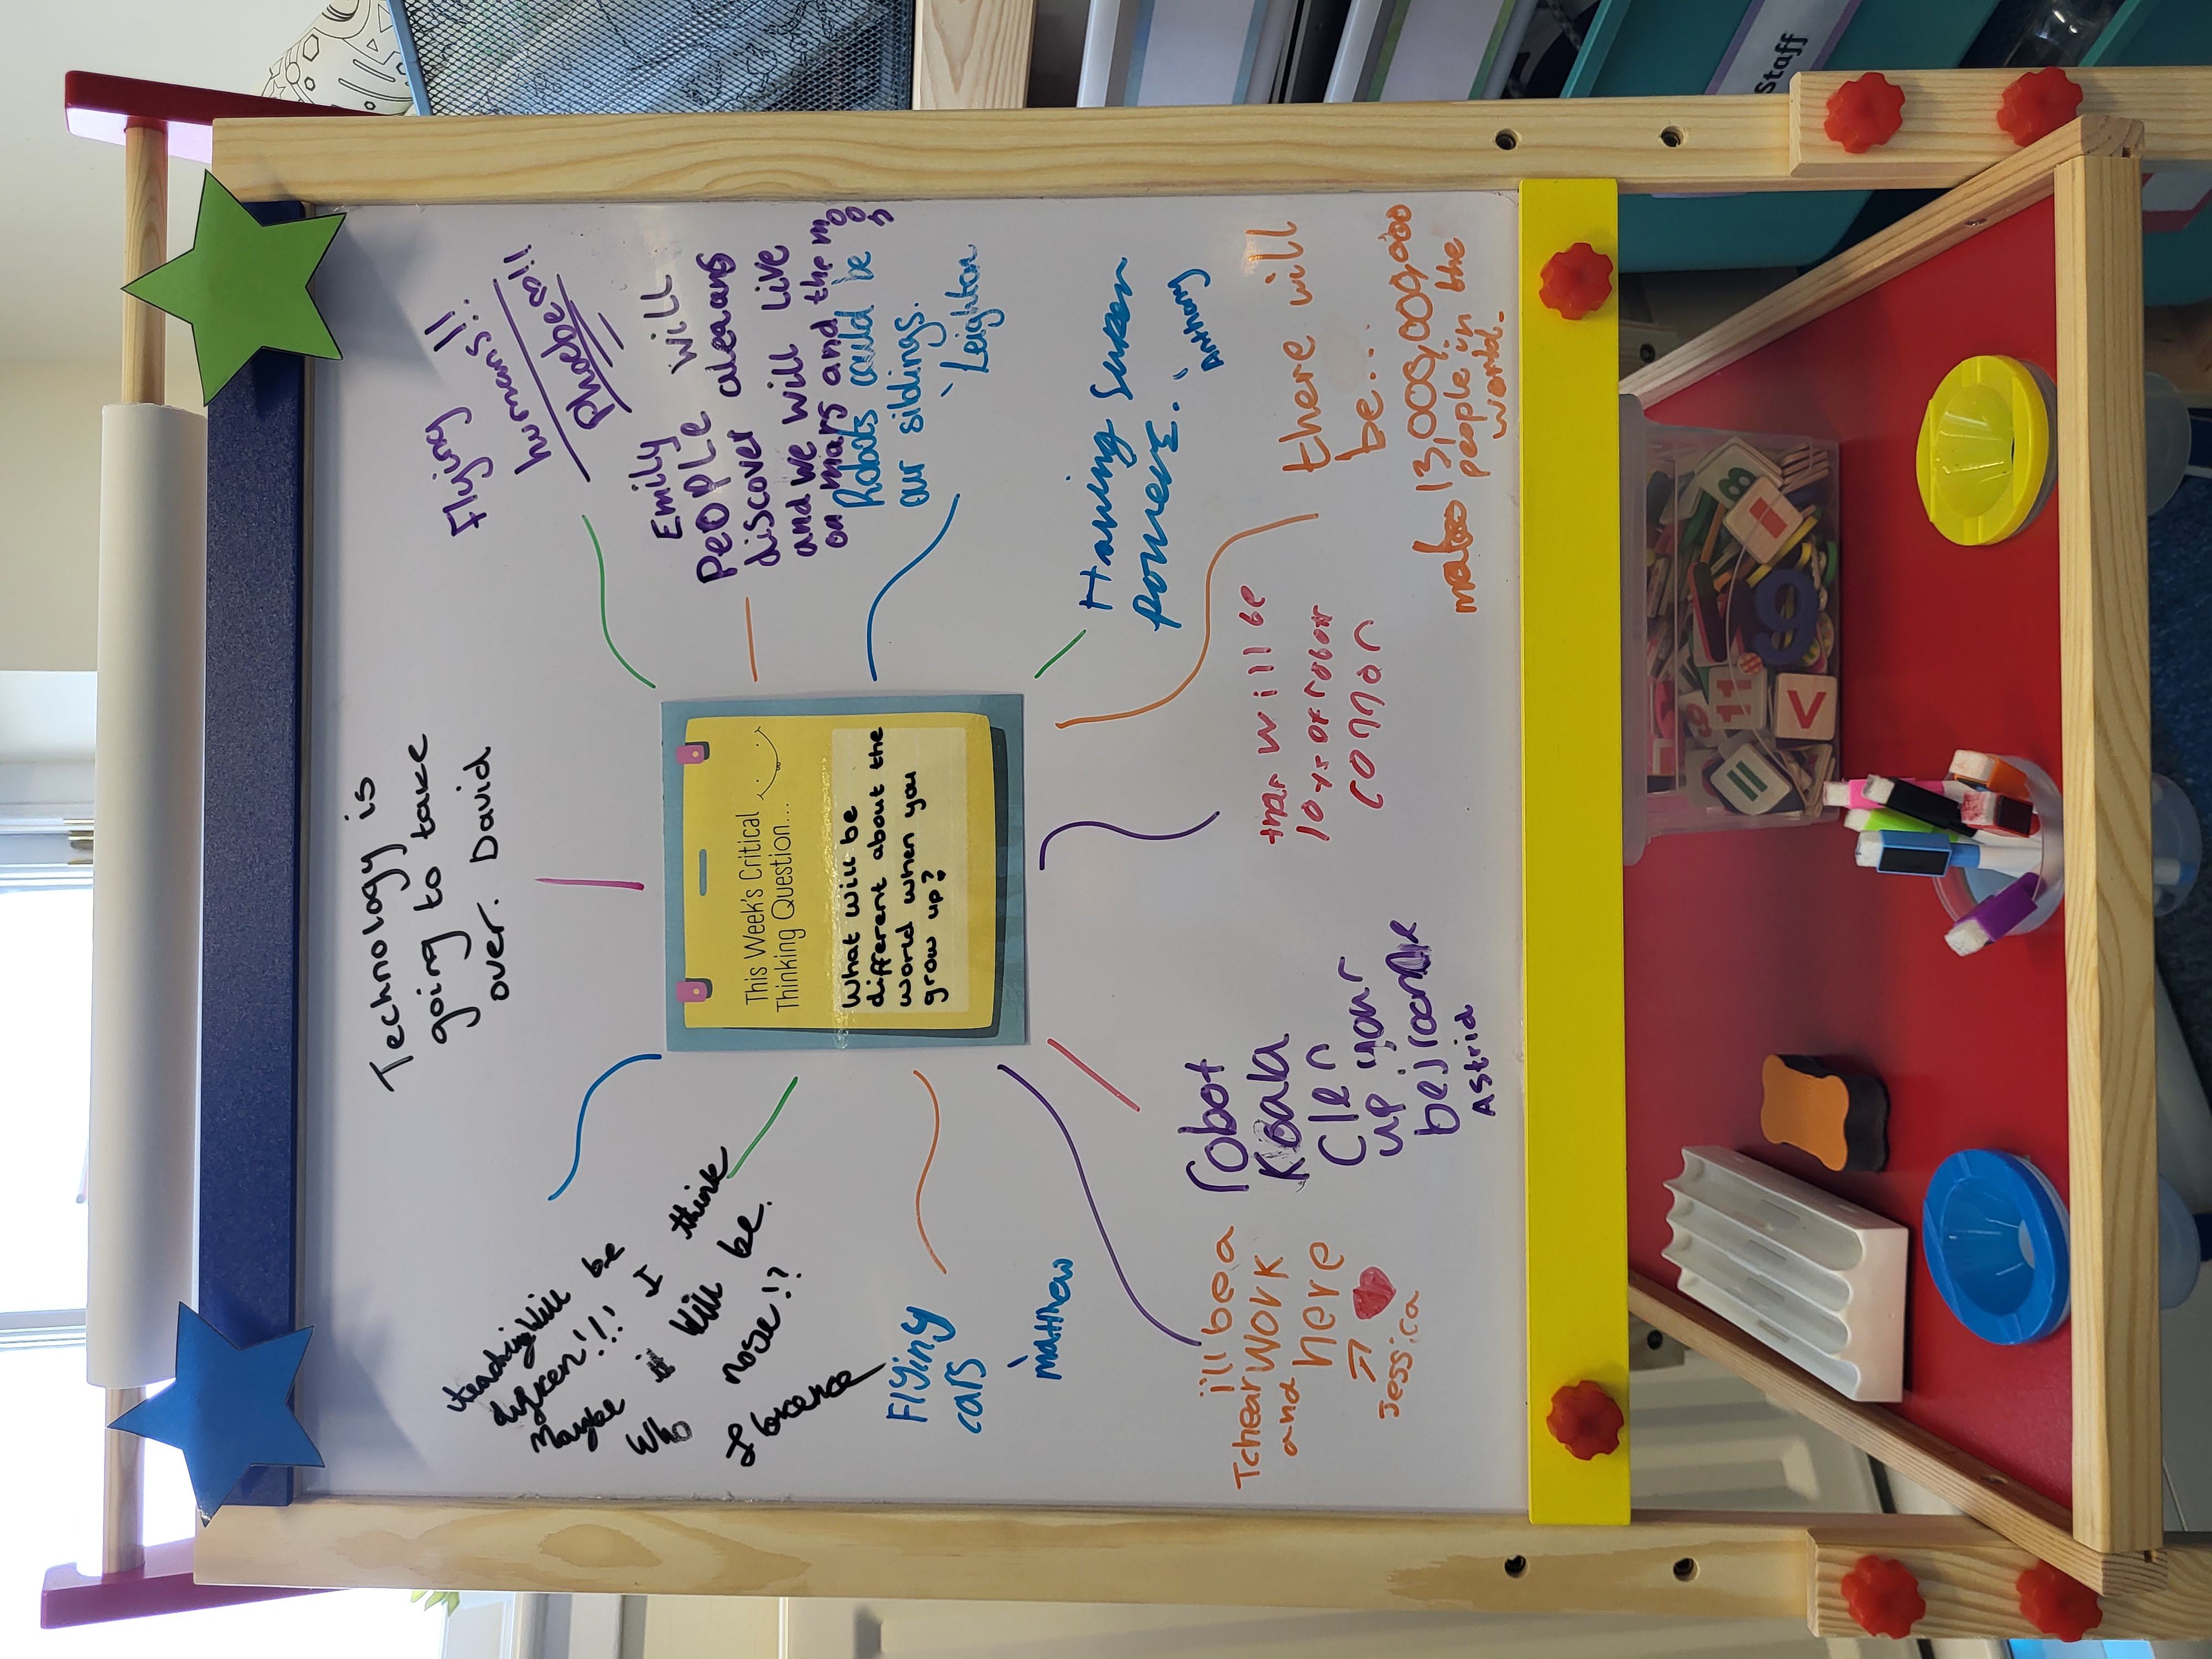 Technology is
going to take
over. David
Flying !!
humans!!
Phoebe!!
Emily
PeOPLe will
discover aleans
and we will live
on mars and the moon
Robots could be
our siblings.
Leighton
Having super
powers.
Anthony
there will
be...
13,000,000,000
people in the
world.
thar will be
loys of robot
common
robot
Koala
Clen
up your
bejroom
Astrid
ill be a
Tchear work
and here
Jessica
Flying
cars
Matthew
teaching will be
I think
Maybe it will be.
Who nose!?
Florence
This Week's Critical
Thinking Question...
What will be
different about the
world when you
grow up?
Staff